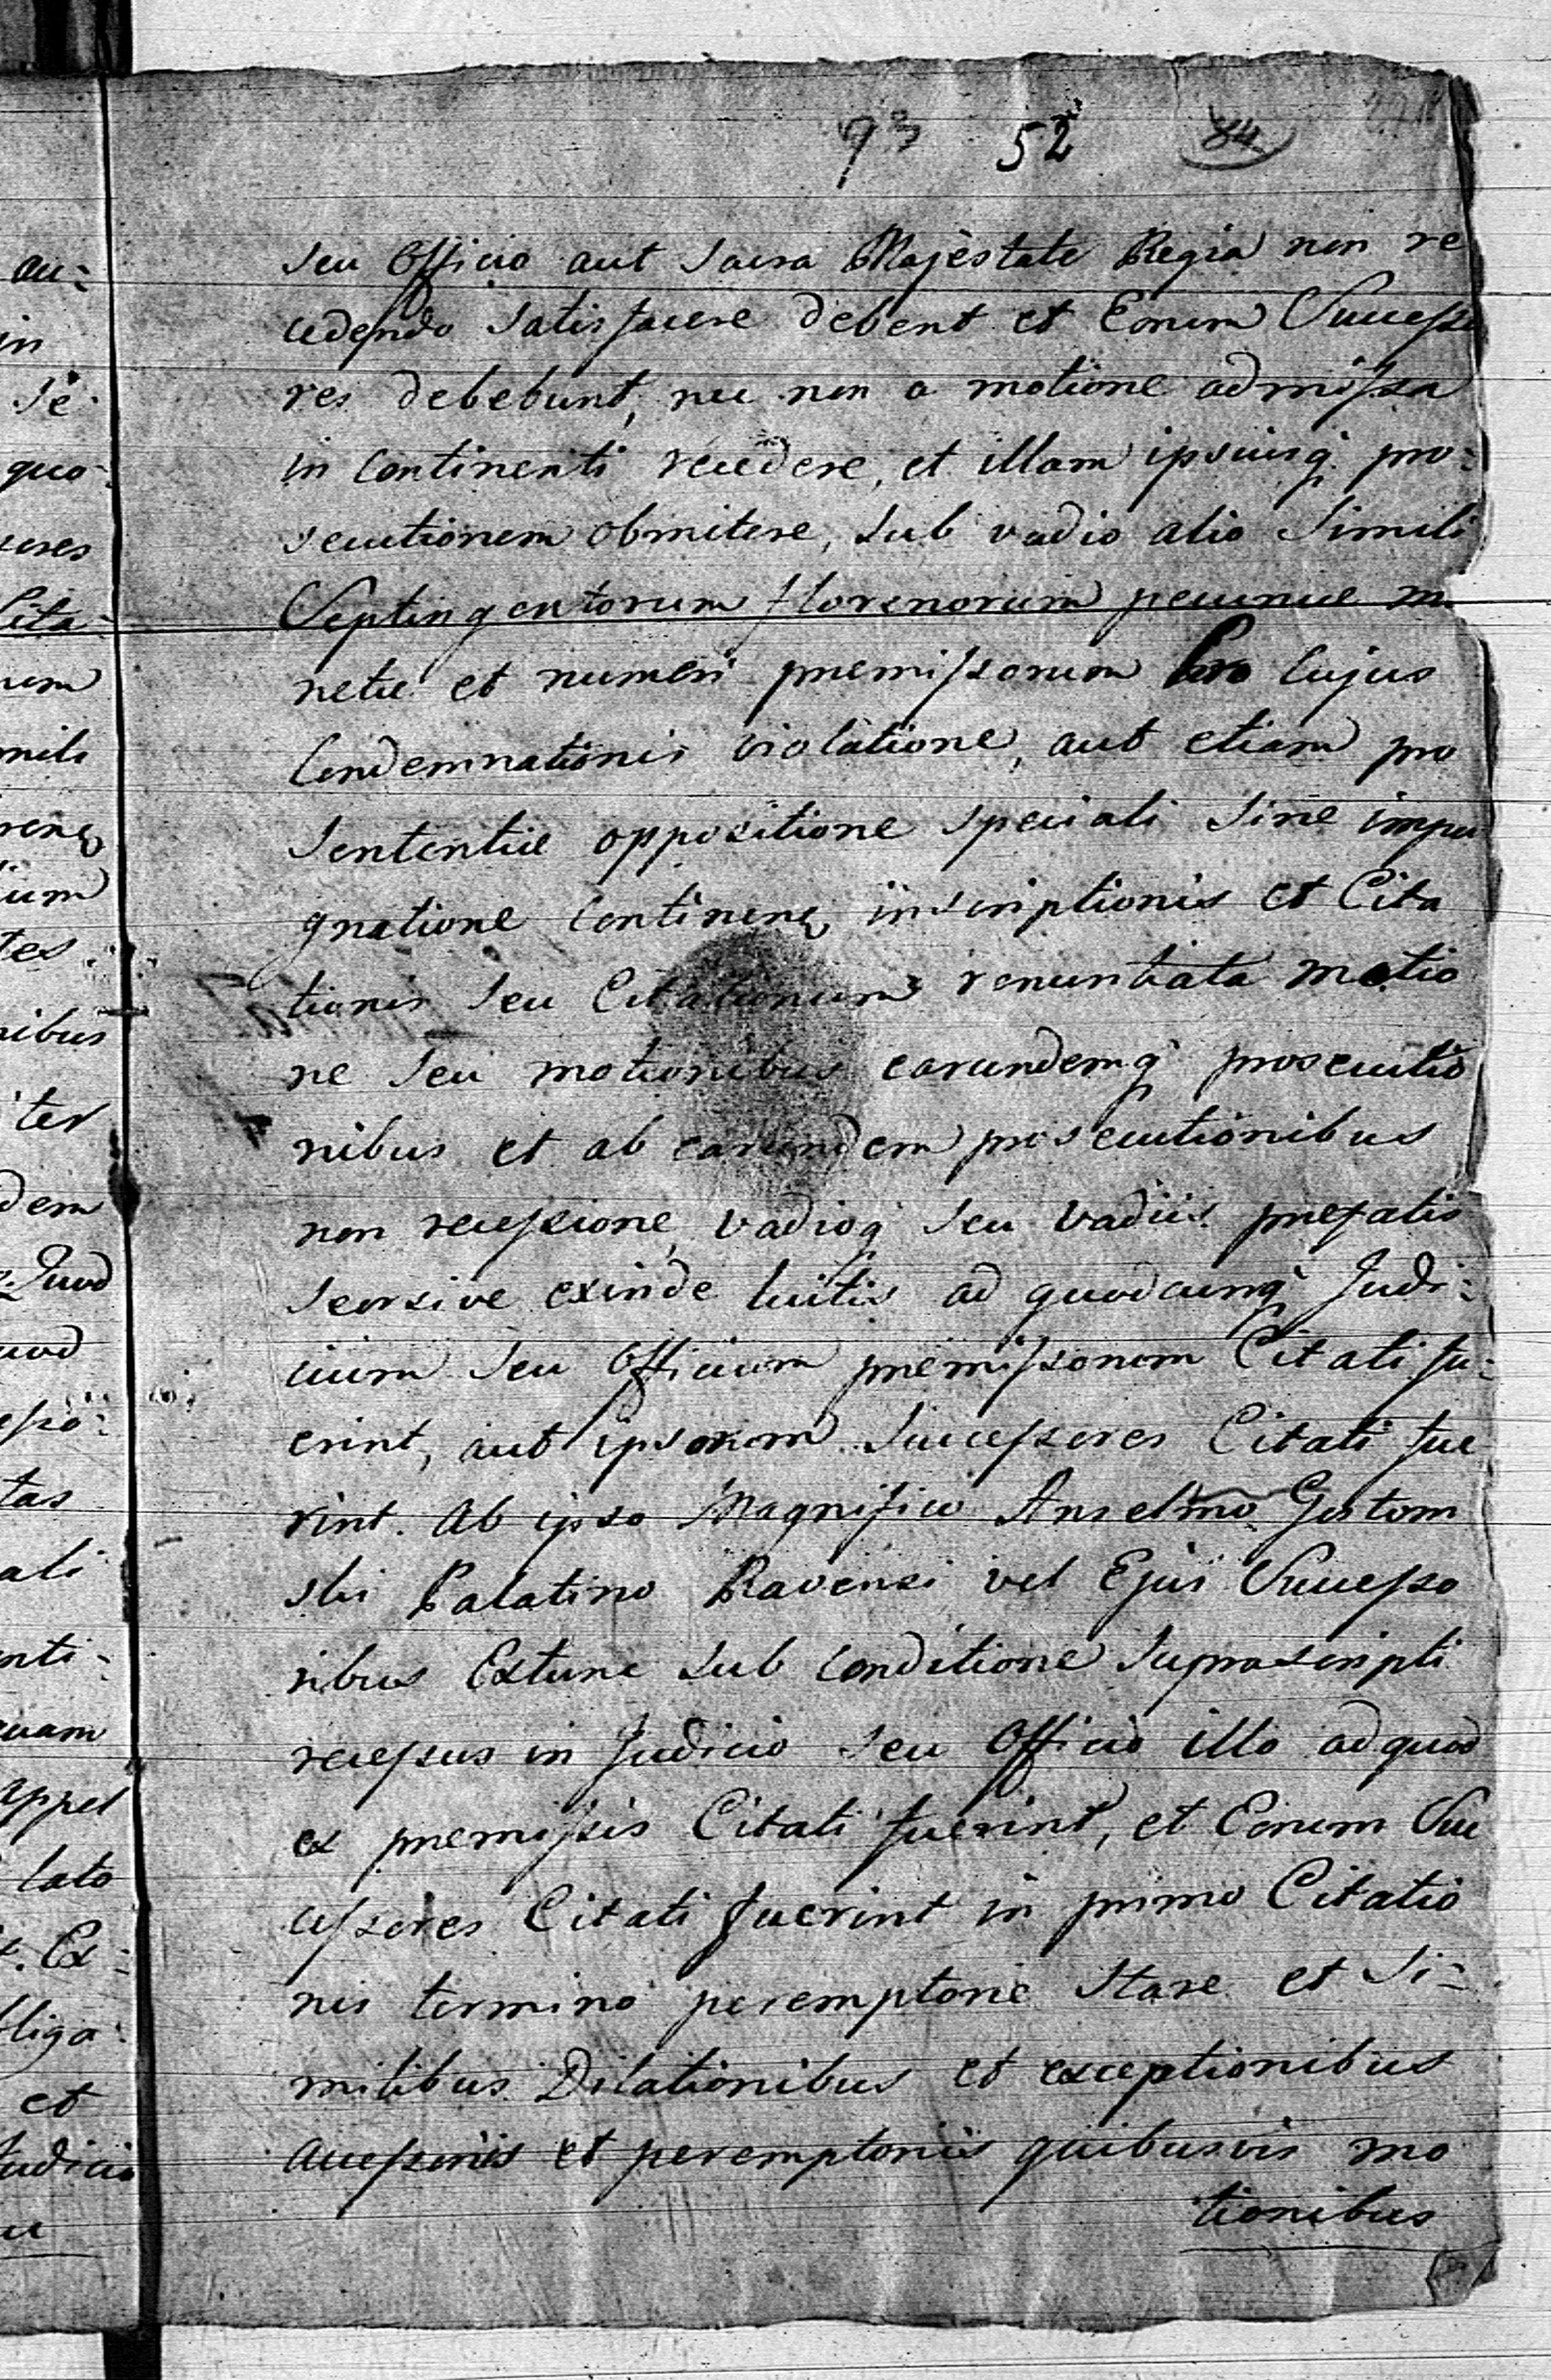 93 52 84
seu Officio aut Sacra Majestate Regia non re
cedendo satisfacere debent et Eorum Successo
res debebunt, nec non a motione admissa
in continenti recedere, et illam ipsiusq pro:
secutionem obmitere, sub vadio alio simili
Septingentorum florenorum pecuniæ mo
netæ et numeri premissorum Pro Cujus
Condemnationis violatione, aut etiam pro
Sententiæ oppositione speciali sine impu
gnatione continenᶎ inscriptionis et Cita
tionis seu Citationum renuntiata motio
ne seu motionibus earundemq prosecutio
nibus et ab earundem prosecutionibus
non recessione, vadioq seu vadiis prefatis
seorsive exinde luitis ad quodcunq Judi:
cium seu Officium premissorum Citati fu:
erint, aut ipsorum Successores Citati fue
rint. Ab ipso Magnifico Anselmo Gostom
ski Palatino Ravensi vel Ejus Successo
ribus Extunc sub conditione suprascripti
recessus in Judicio seu Officio illo ad quod
ex premissis Citati fuerint, et Eorum Suc
cessores Citati fuerint in primo Citatio
nis termino peremptorie stare et Si:
milibus Dilationibus et exceptionibus
accessoriis et peremptoriis quibusvis mo
tionibus
au:
in
se
quo:
Cita:
mili
tes
nibus
ter
dem
Quod
tas
ali
nti:
quam
appel
lato
Ex:
bliga:
et
Judicio